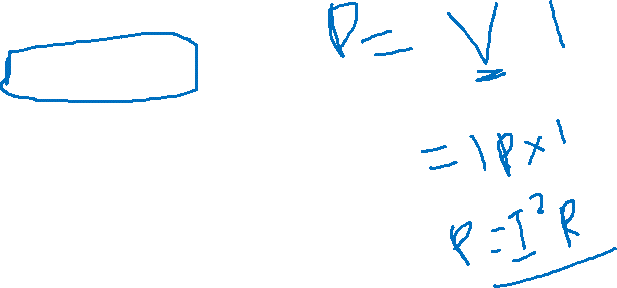 P = V I
= I R × I
P = I² R